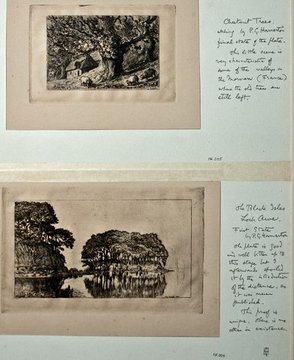 Chestnut Trees
etching by P. G. Hamerton
final state of the plate.
This little scene is
very characteristic of
some of the valleys in
the Morvan (France)
where the old trees are
still left.
The Black Isles
Loch Awe.
First State
by P. G. Hamerton
The plate is good
and well bitten up to
this stage but I
afterwards spoiled
it by the introduction
of the distance, so
it was never
published.
This proof is
unique. There is no
other in existence.